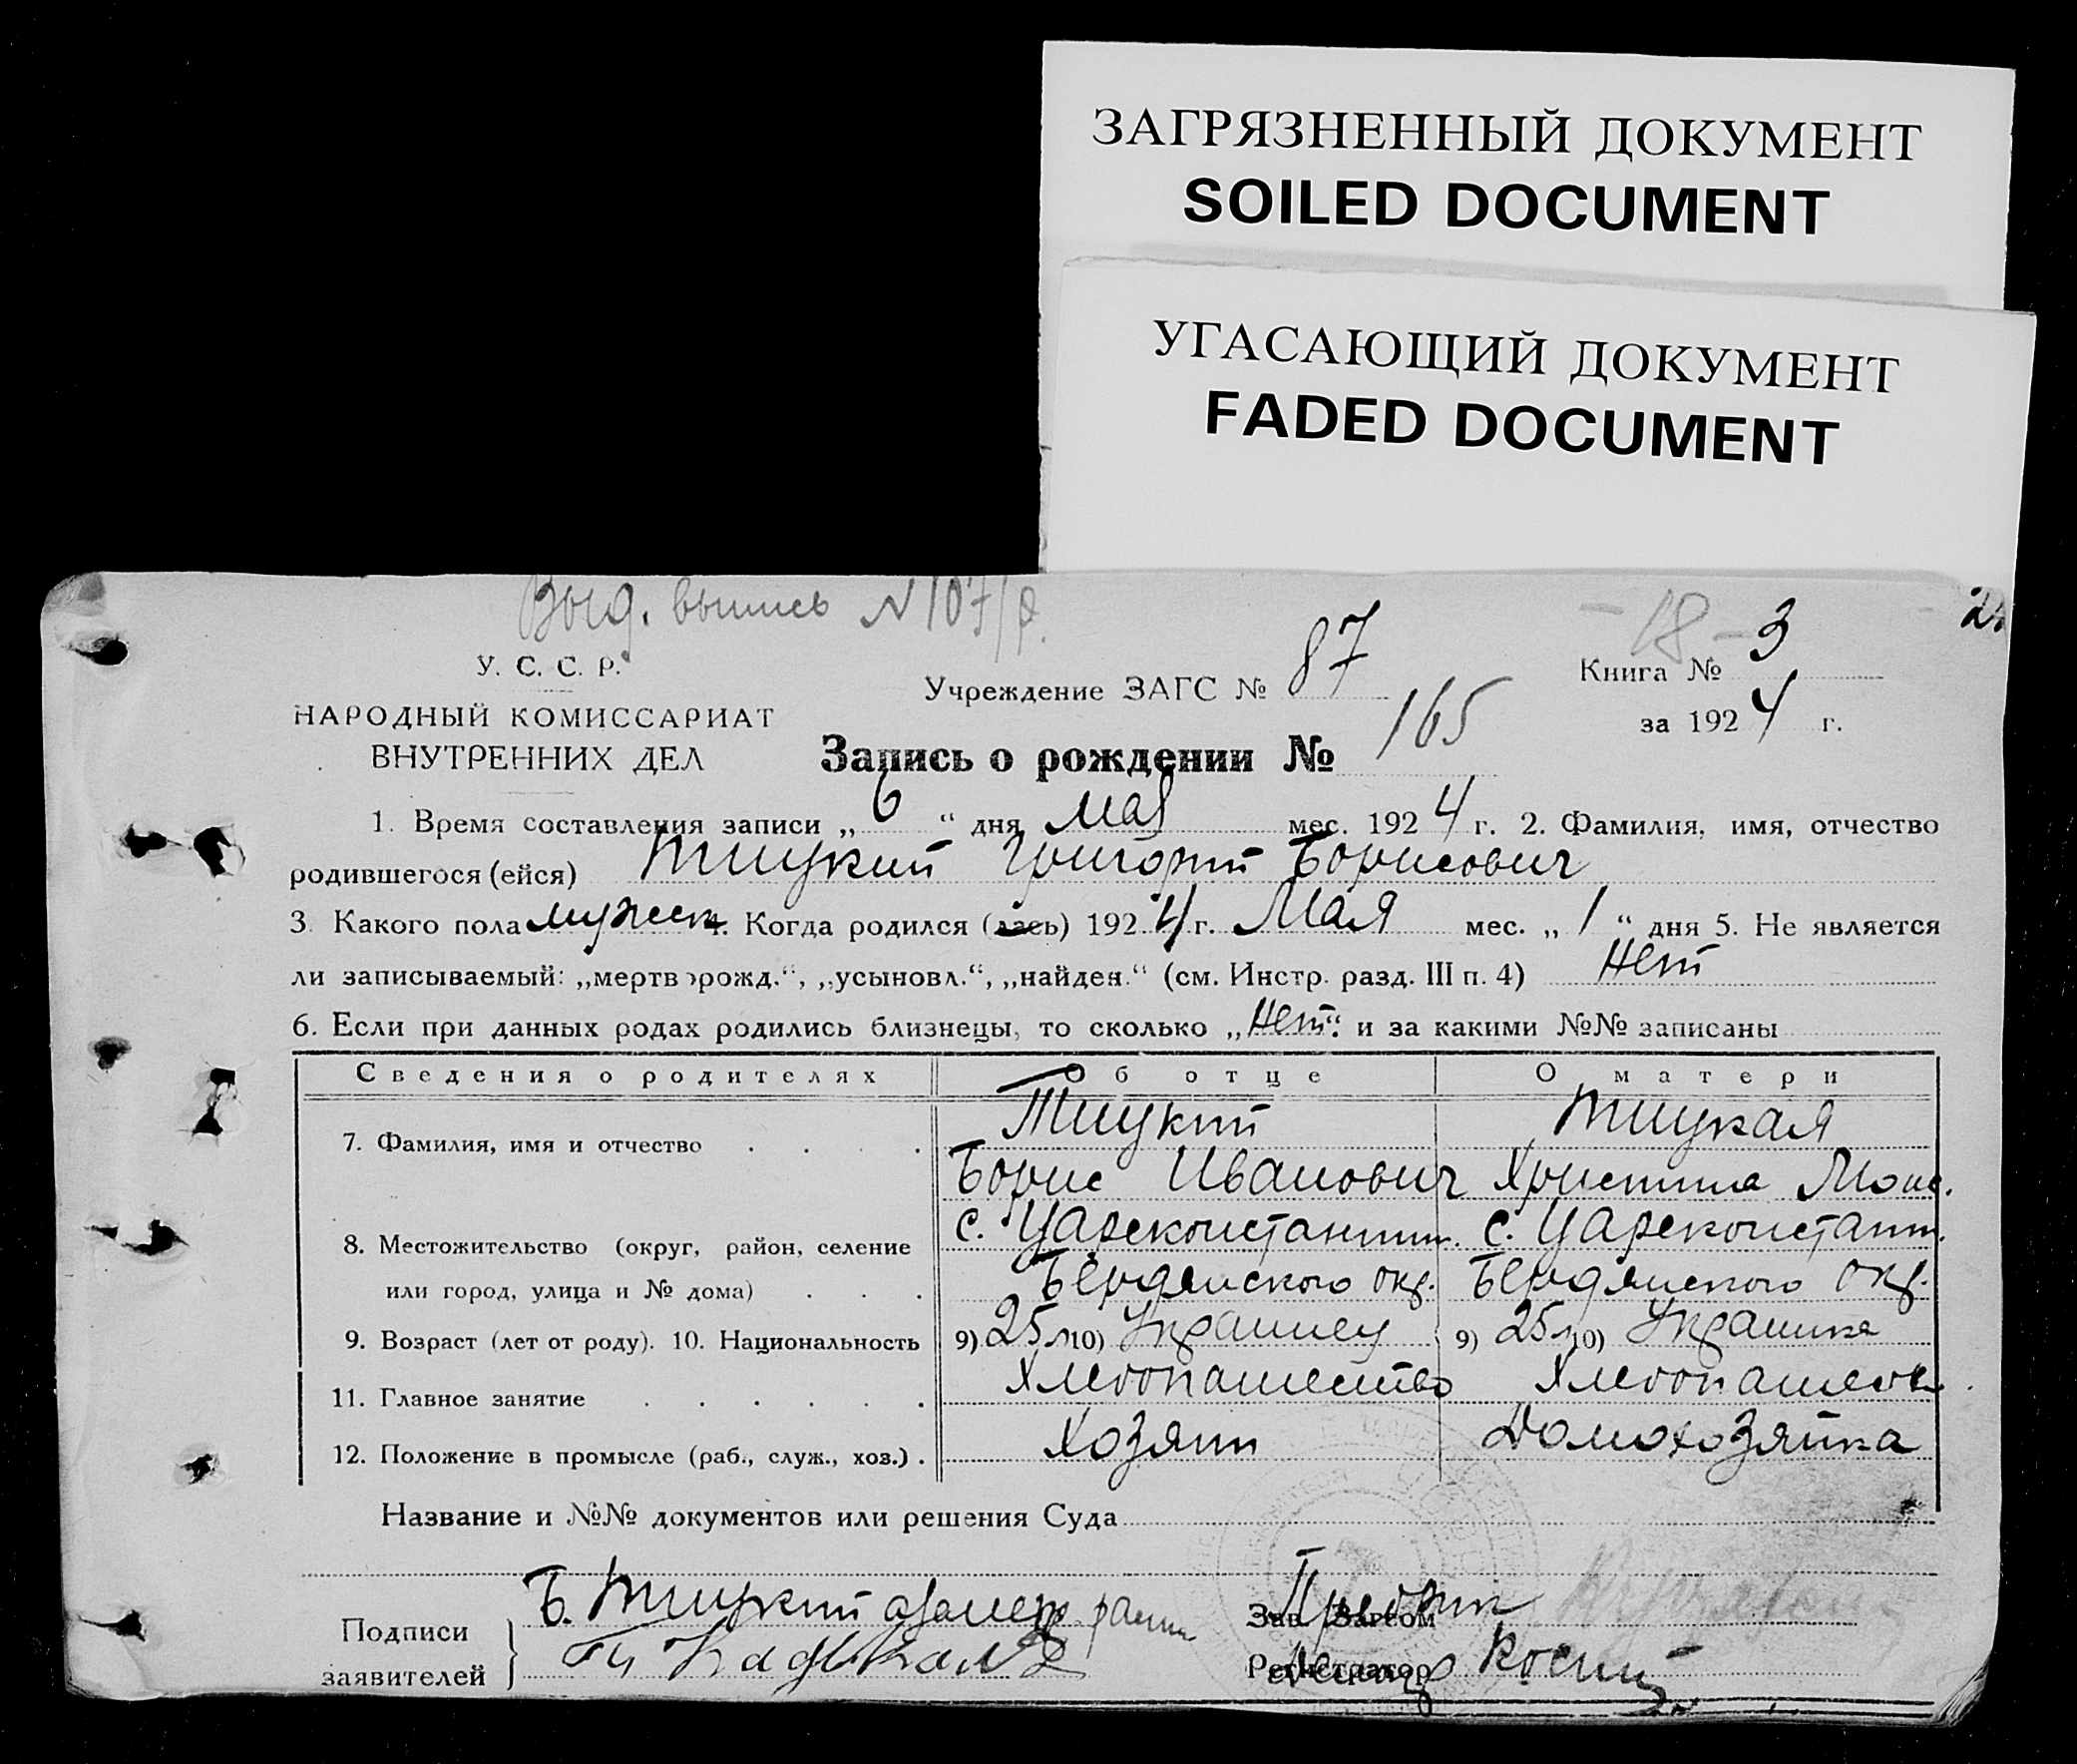 ЗАГРЯЗНЕННЫЙ ДОКУМЕНТ
SOILED DOCUMENT
УГАСАЮЩИЙ ДОКУМЕНТ
FADED DOCUMENT
Выд. выпись N 107/р.
-18-
У. С. С. Р.
НАРОДНЫЙ КОМИССАРИАТ
ВНУТРЕННИХ ДЕЛ
Учреждение ЗАГС № 87
Книга № 3
за 1924 г.
Запись о рождении № 165
1. Время составления записи „6“ дня мая мес. 1924 г. 2. Фамилия, имя, отчество
родившегося (ейся) Тицкий Григорий Борисович
3. Какого пола мужск 4. Когда родился (лась) 1924 г. Мая мес. „1“ дня 5. Не является
ли записываемый: „мертворожд.“, „усыновл.“, „найден.“ (см. Инстр. разд. III п. 4) Нет
6. Если при данных родах родились близнецы, то сколько „Нет“ и за какими №№ записаны
Сведения о родителях Об отце О матери
7. Фамилия, имя и отчество Тицкий Тицкая
Борис Иванович Христина
8. Местожительство (округ, район, селение с. Цареконстантин. с. Цареконстант.
или город, улица и № дома) Бердянского окр. Бердянского окр.
9. Возраст (лет от роду). 10. Национальность 9) 25 л 10) Украинец 9) 25 л 10) Украинка
11. Главное занятие Хлебопашество Хлебопашеств.
12. Положение в промысле (раб., служ., хоз.) Хозяин Домохозяйка
Название и №№ документов или решения Суда
Подписи
заявителей
Б. Тицкий
Зав. Загсом
Регистратор